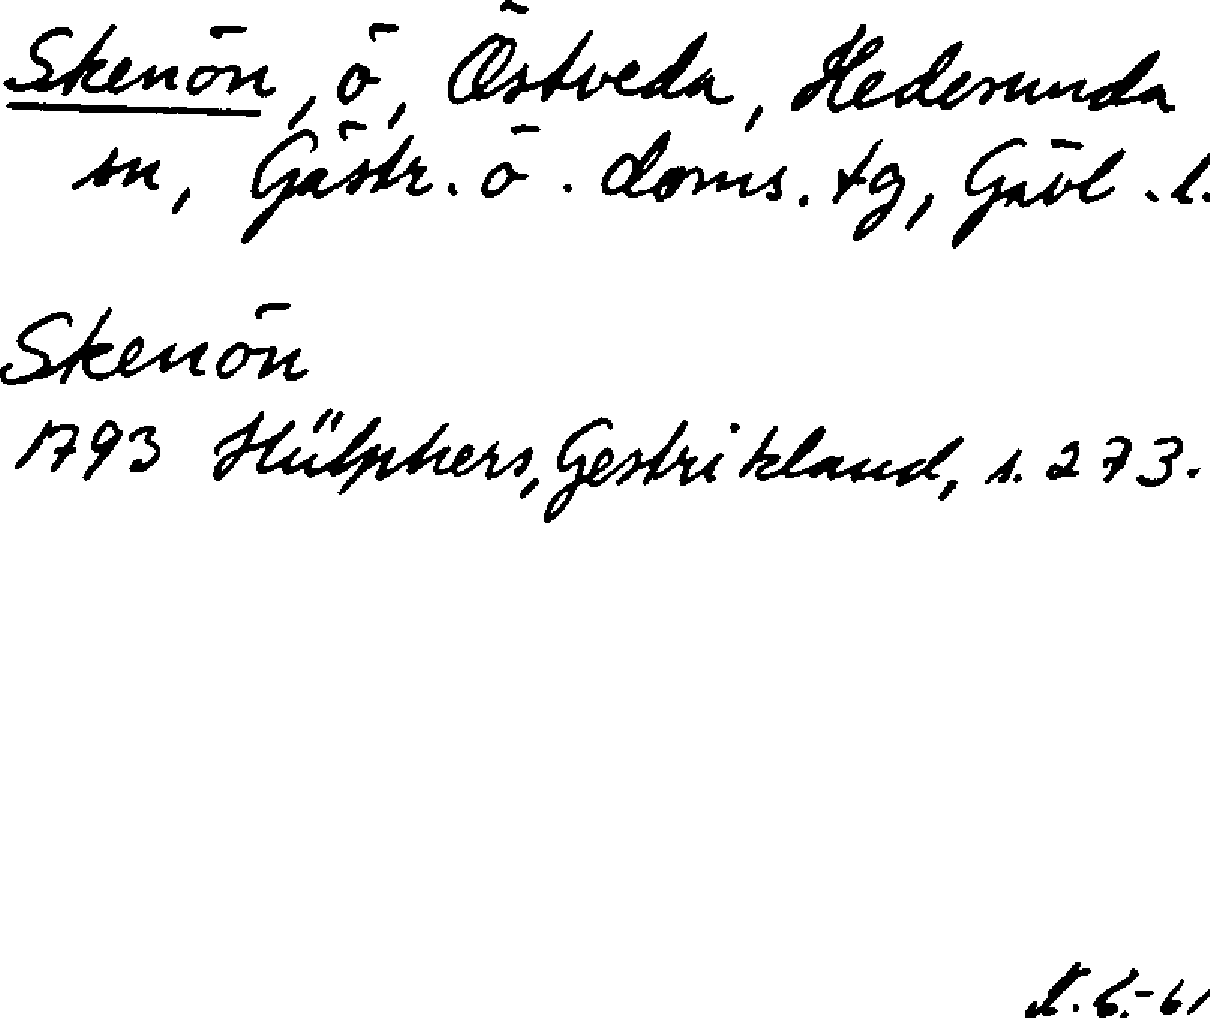 Skenön, ö, Östveda, Hedesunda
sn, Gästr. ö. doms. tg, Gävl. l.
Skenön
1793 Hülphers, Gestrikland, s. 273.